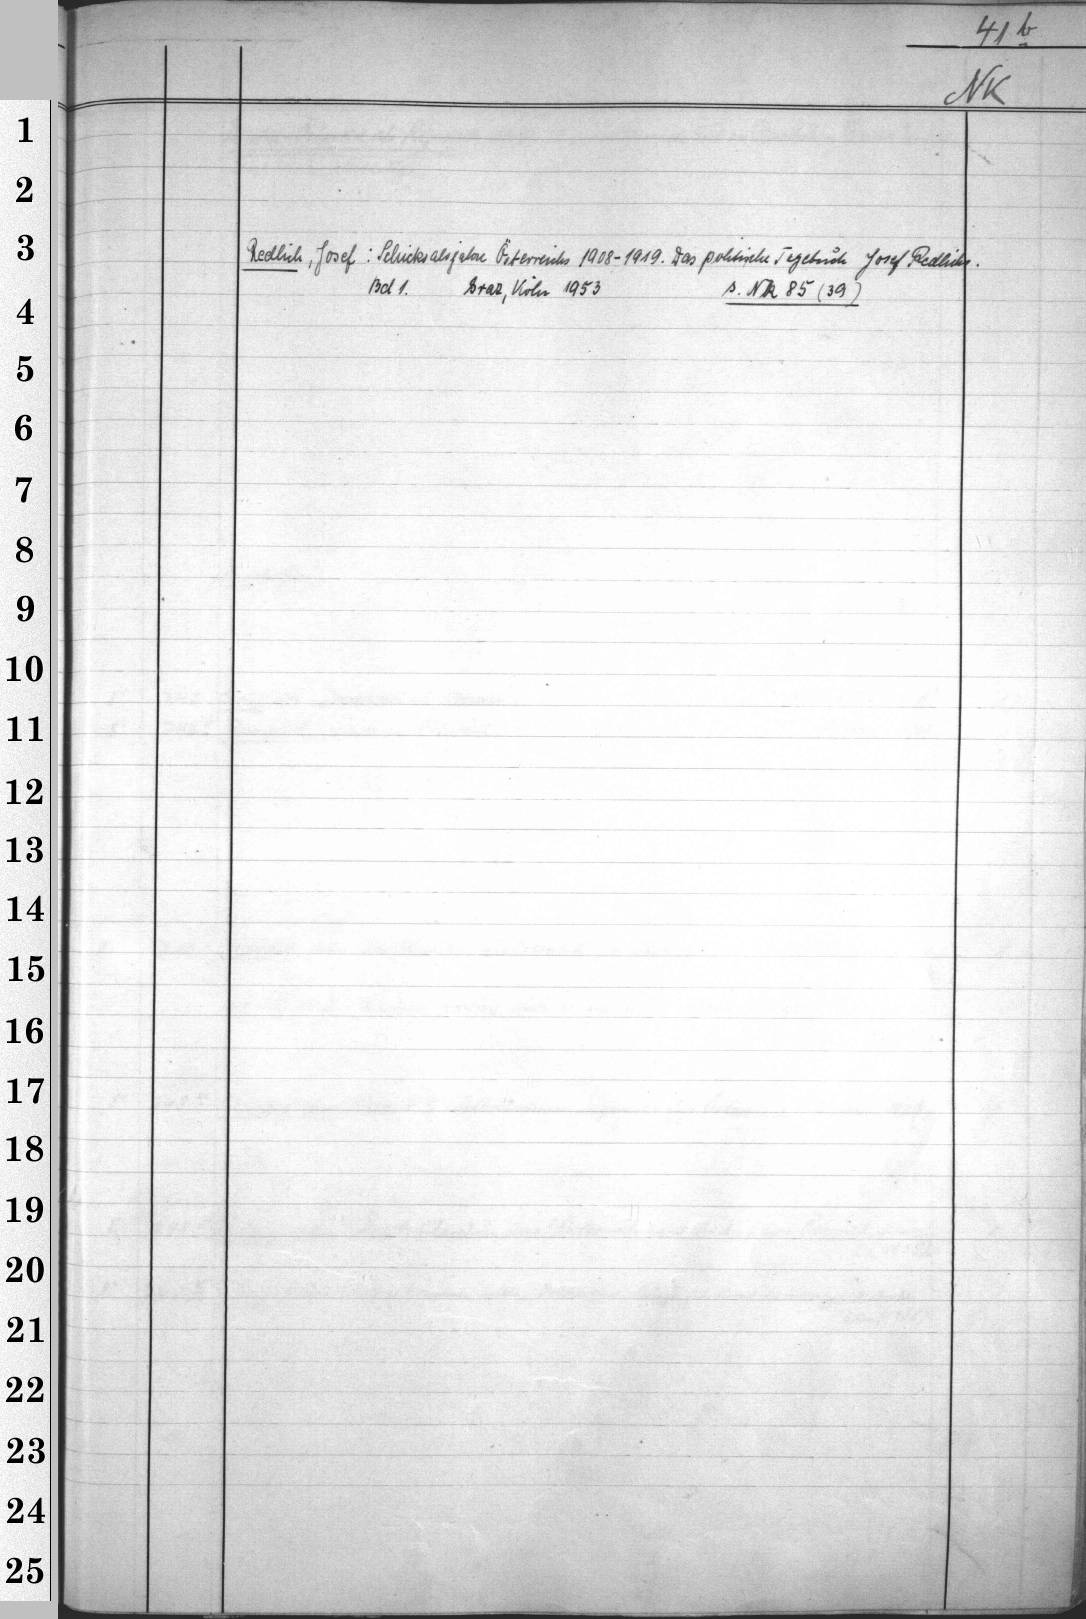 41 b
NK
1
2
3
Redlich, Josef : Schicksalsjahre Österreichs 1908-1919. Das politische Tagebuch Josef Redlichs.
Bd 1. Graz, Köln 1953 s. NK 85 (39)
4
5
6
7
8
9
10
11
12
13
14
15
16
17
18
19
20
21
22
23
24
25